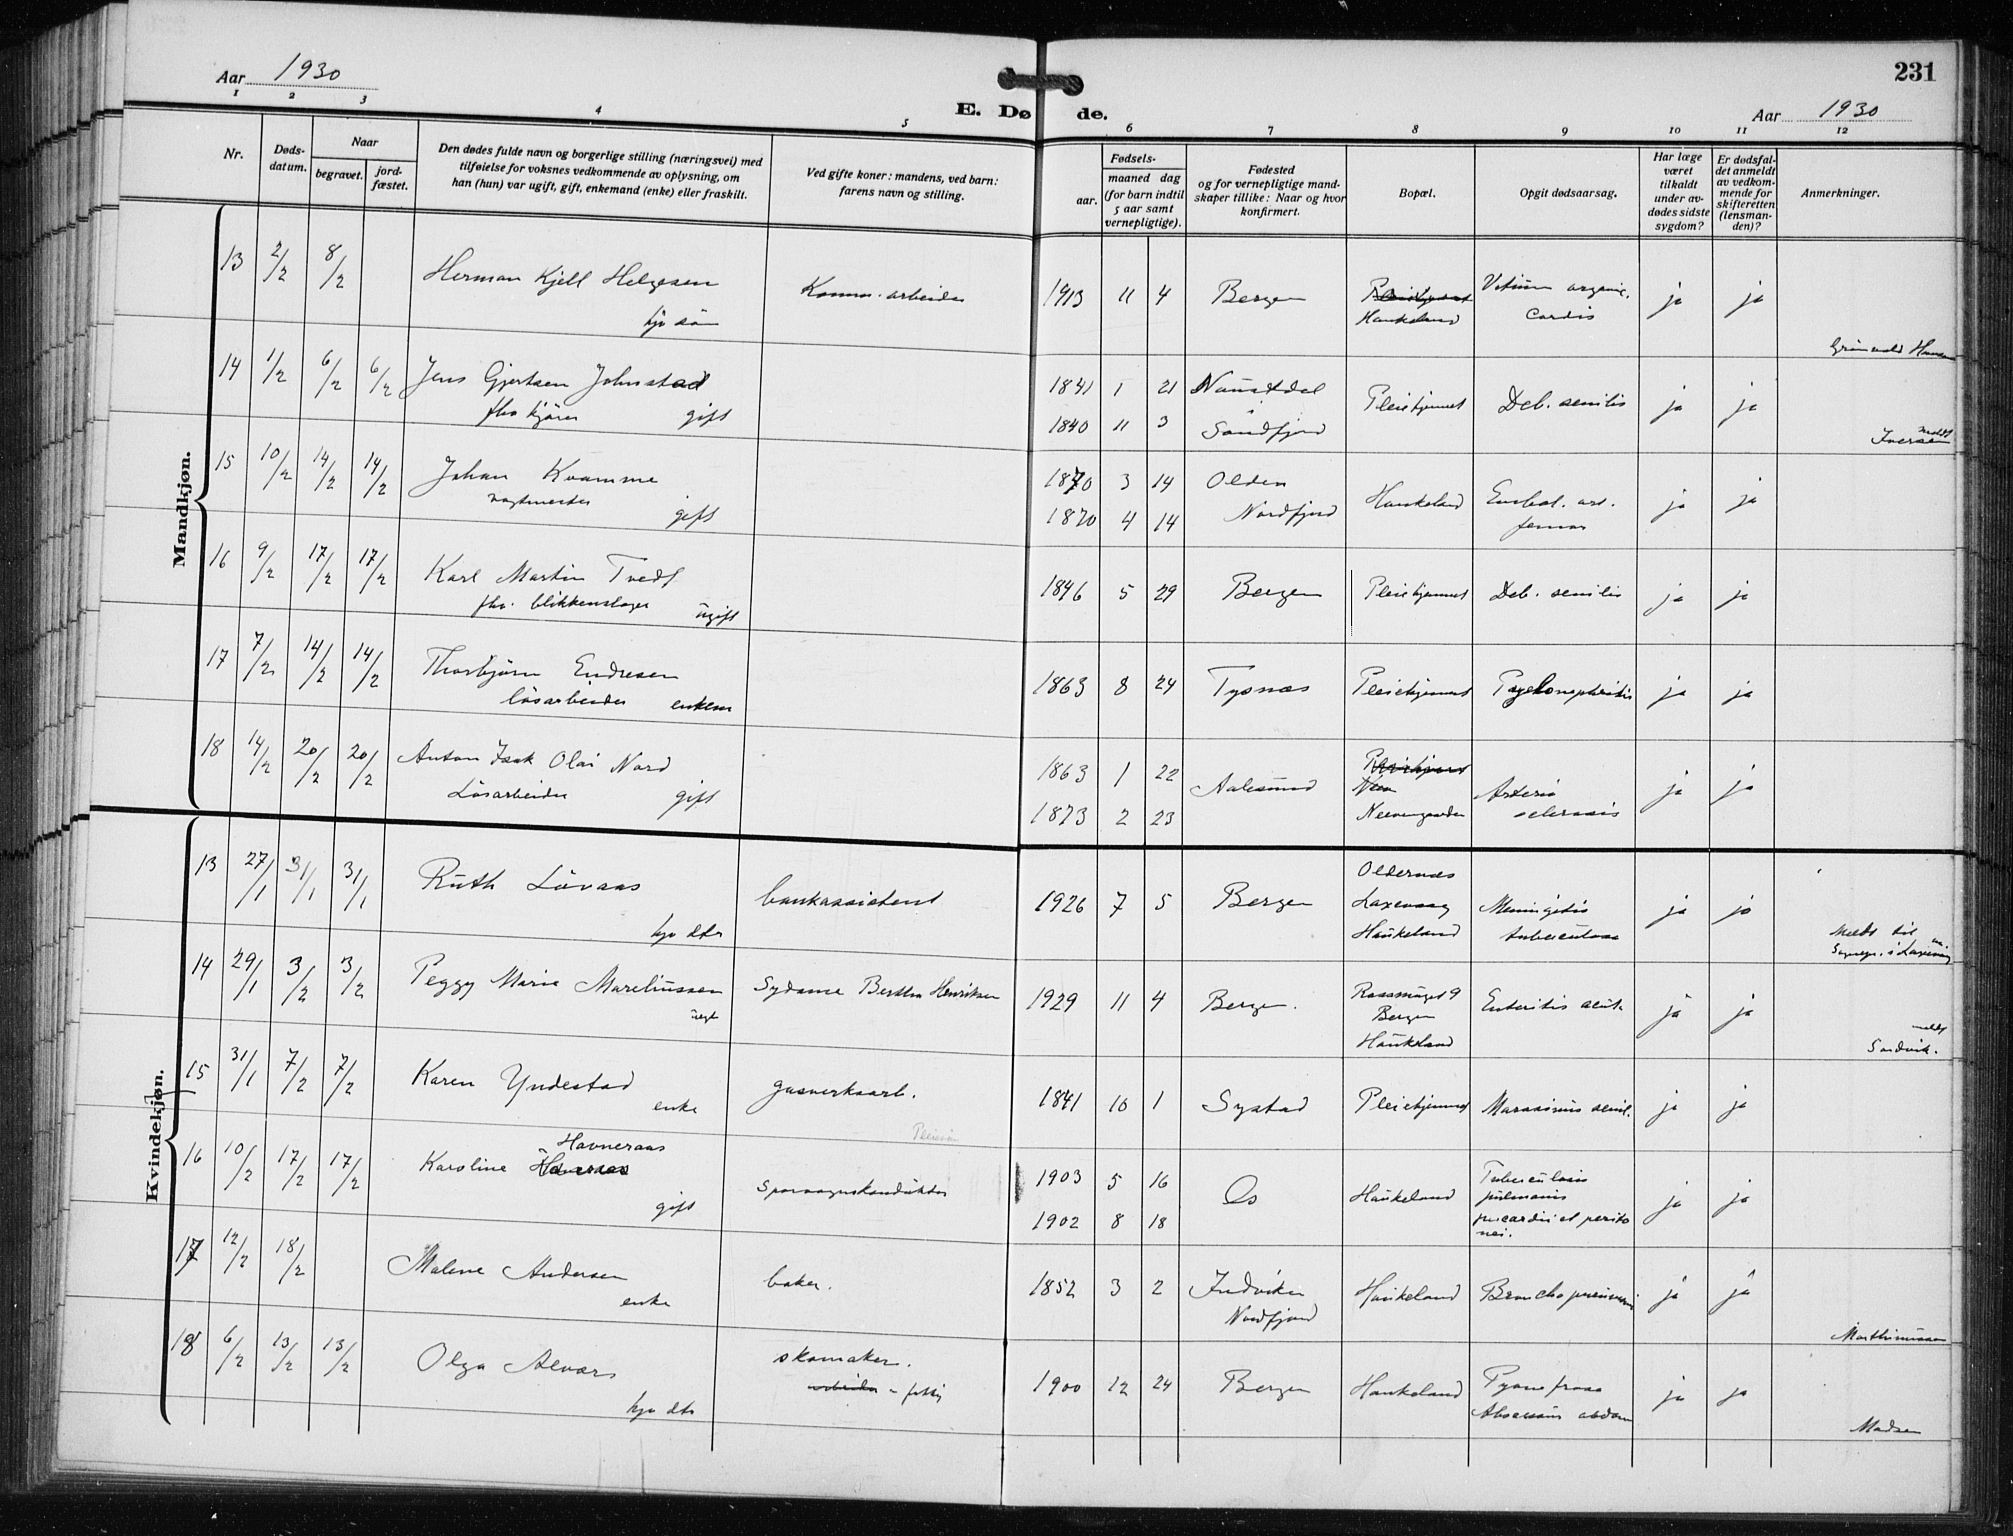 231
Aar 1930
E. Døde.
Aar 1930
1 2 3 4 5 6 7 8 9 10 11 12
Nr.
Døds-
datum.
Naar
begravet.
jord-
fæstet.
Den dødes fulde navn og borgerlige stilling (næringsvei) med
tilføielse for voksnes vedkommende av oplysning, om
han (hun) var ugift, gift, enkemand (enke) eller fraskilt.
Ved gifte koner: mandens, ved barn:
farens navn og stilling.
Fødsels-
aar.
maaned dag
(for barn indtil
5 aar samt
vernepligtige).
Fødested
og for vernepligtige mand-
skaper tillike: Naar og hvor
konfirmert.
Bopæl.
Opgit dødsaarsag.
Har læge
været
tilkaldt
under av-
dødes sidste
sygdom?
Er dødsfal-
det anmeldt
av vedkom-
mende for
skifteretten
(lensman-
den)?
Anmerkninger.
Mandkjøn.
13 2/2 8/2 Herman Kjell Helgesen Komm. arbeider 1913 11 4 Bergen Vitium organic. ja ja
sön Haukeland Cordis
14 1/2 6/2 6/2 Jens Gjertsen Johnstad 1841 1 21 Naustdal Pleiehjemmet Deb. senilis ja ja
fhv kjører gift 1840 11 3 Söndfjord Iversen
15 10/2 14/2 14/2 Johan Kvamme 1870 3 14 Olden Haukeland Embol. art. ja ja
vagtmester gift 1870 4 14 Nordfjord
16 9/2 17/2 17/2 Karl Martin Tvedt 1846 5 29 Bergen Pleiehjemmet Deb. senilis ja ja
fhv. blikkenslager ugift
17 7/2 14/2 14/2 Thorbjørn Endresen 1863 8 24 Tysnes Pleiehjemmet Pyelonephritis ja ja
løsarbeider enkem
18 14/2 20/2 20/2 Anton Isak Olai Nord 1863 1 22 Aalesund Arterio ja ja
Løsarbeider gift 1873 2 23 sclerosis
Kvindekjøn.
13 27/1 31/1 31/1 Ruth Lövaas bankassistent 1926 7 5 Bergen Oldernes
Laxevaag Meningitis ja ja
dtr Haukeland tuberculosa Meldt til
14 29/1 3/2 3/2 Peggy Marie Mareliussen Sydame Bertha Henriksen 1929 11 4 Bergen. Enteritis acut. ja ja
Bergen
Haukeland meldt
Sandvik.
15 31/1 7/2 7/2 Karen Yndestad gasverksarb. 1841 10 1 Systad Pleiehjemmet Marasmus senil. ja ja
enke
Havneraas
16 10/2 17/2 17/2 Karoline Sporvognskonduktør 1903 5 16 Os Haukeland Tuberculosis ja ja
pulmonis
gift 1902 8 18
17 12/2 18/2 Malene Andersen baker. 1852 3 2 Indviken Haukeland Bronchopneumoni ja ja
enke Nordfjord Marthinussen
18 6/2 13/2 13/2 Olga Alvær skomaker. 1900 12 24 Bergen Haukeland ja ja
dtr Madsen